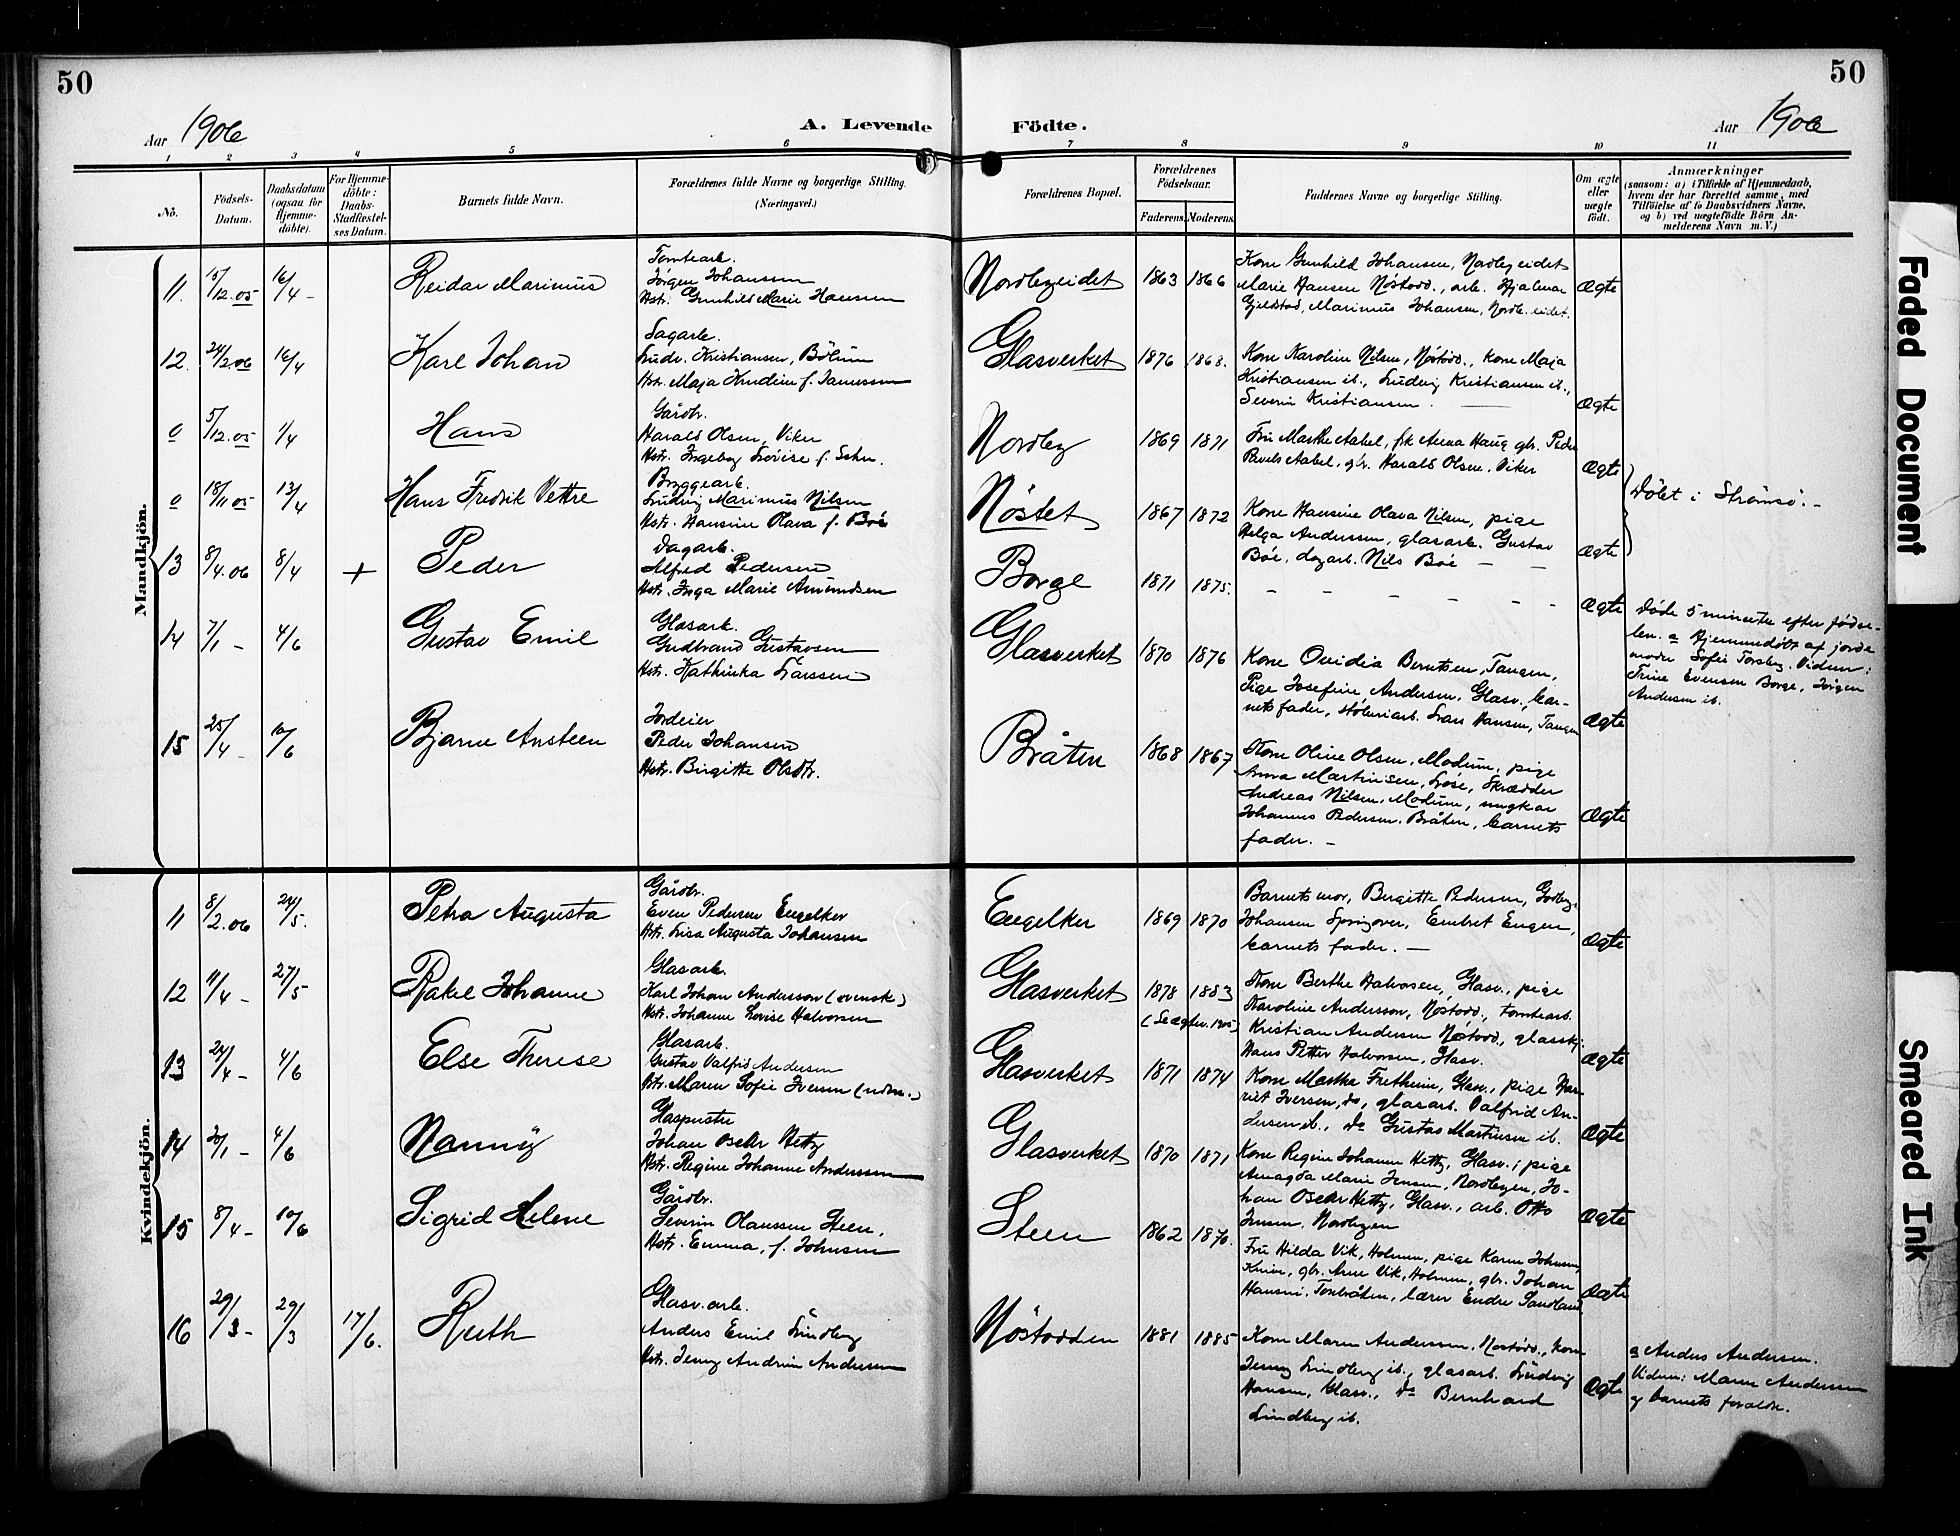 50
50
Aar 1906
A. Levende
Födte.
Aar 1906
1 2 3 4 5 6 7 8 9 10 11
No.
Födsels-Datum.
Daabsdatum (ogsaa for Hjemme-döbte).
For Hjemme-döbte: Daabs-Stadfæstel-ses Datum.
Barnets fulde Navn.
Forældrenes fulde Navne og borgerlige Stilling.
(Næringsvei.)
Forældrenes Bopæl.
Forældrenes Födselsaar.
Faderens. Moderens.
Faddernes Navne og borgerlige Stilling.
Om ægte eller uægte födt.
Anmærkninger
(saasom: a) i Tilfælde af Hjemmedaab,
hvem der har forrettet samme, med
Tilföielse af to Daabsvidners Navne,
og b) ved uægtefödte Börn An-
melderens Navn m. V.)
Mandkjön.
11. 15/12.05 16/4 - Reidar Marinius
Tomtearb.
Jørgen Johansen
Hstr. Gunhild Marie Hansen
Nordbyeidet 1863 1866
Kone Gunhild Johansen, Nordbyeidet
Marie Hansen Nøstodd., arb. Hjalmar
Gjelstad, Marinius Johansen, Nordb. eidet.
Ægte
12. 24/2.06 16/4 Karl Johan
Sagarb.
Ludv. Kristiansen, Bölum
Hstr. Maja Knudine f. Jansson
Glasverket 1876 1868.
Kone Karoline Nilsen, Nöstodd., kone Maja
Kristiansen ib., Ludvig Kristiansen ib.,
Severin Kristiansen.
Ægte
0 5/12.05 1/4 Hans
Gårdbr.
Harald Olsen, Viker
Hstr. Ingeborg Lovise f.
Nordby 1869 1871
Fru Marthe Aabel, frk Anna Haug gbr. Peder
Aabel, gbr. Harald Olsen, Viker
Ægte
0 18/11 05 13/4 Hans Fredrik Vettre
Bryggearb.
Ludvig Marinius Nilsen
Hstr. Hansine Olava f. Böe
Nöstet 1867 1872
Kone Hansine Olava Nilsen, pige
Helga Andersen, glasarb. Gustav
Böe, dagarb. Nils Böe - -
Ægte
Döbt i Strömsö. -
13 8/4.06 8/4 + Peder
Dagarb.
Alfred Pedersen
Hstr. Inga Marie Amundsen
Borge 1871 1875.
- - - - - -
Ægte
Døde 5 minuter efter fødse-
len. a Hjemmedöbt af jorde
moder Sofie Torsby. Vidner:
Trine Evensen Borge, Jörgen
Andersen ib.
14 7/1 - 4/6 Gustav Emil
Glasarb.
Gudbrand Gustavsen
Hstr. Kathinka Larssen
Glasverket 1870 1876
Kone Ovidia Berntsen, Tangen,
Pige Josefine Andersen, Glasv., bar-
netsfader, stöberiarb. Lars Hansen, Tangen
Ægte
15 25/4 - 10/6 Bjarne Ansteen
Jordeier
Peder Johansen
Hstr. Birgitte Olsdtr.
Bråten 1868 1867
Kone Oline Olsen, Modum, pige
Anna Martinsen, Löse, Skrædder
Andreas Nilsen, Modum, ungkar
Johannes Pedersen, Bråten, barnets
fader. -
Ægte
Kvindekjön.
11 8/2.06 24/5. Petra Augusta
Gårdbr.
Even Pedersen Engelker
Hstr. Lisa Augusta Johansen
Engelker 1869 1870
Barnets mor, Birgitte Pedersen,
Johansen, Embret Engen,
barnets fader. -
Ægte
12 11/4 - 27/5 Rakel Johanne
Glasarb.
Karl Johan Andersson (svensk)
Hstr. Johanne Lovise Halvorsen
Glasverket 1878 1883
Kone Berthe Halvorsen, Glasv., pige
Karoline Andersson, Nöstodd., tomtearb.
Kristian Andersen Nöstodd,
Hans Petter Halvorsen, Glasv.
Ægte
13 24/4 - 4/6 Else Therese
Glasarb.
Gustav Valfrid Andersen
Hstr. Maren Sofie Iversen
Glasverket 1871 1874
Kone Marthe Fretheim, Glasv., pige Har-
riet Iversen, do, glasarb. Valfrid An-
dersen ib., do Gustav Martinsen ib.
Ægte
14 20/1 - 4/6 Nanny
Glaspuster
Johan Oscar Hetty
Hstr. Regine Johanne Anderssen
Glasverket 1870 1871
Kone Regine Johanne Hetty, Glasv., pige
Amagda Marie Jensen, Nordbyen, Jo-
han Oscar Hetty, Glasv., arb. Otto
Jensen, Nordbyen
Ægte
15 8/4 - 10/6 Sigrid Helene
Gårdbr.
Severin Olaussen Steen,
Hstr. Emma, f. Johnsen
Steen 1862 1870.
Fru Hilda Vik, Holmen, pige Karen Johnsen,
gbr. Arne Vik, Holmen, gbr. Johan
Hansen, lærer Endre Sandland
Ægte
16 29/3 - 29/3 17/6. Ruth
Glasv. arb.
Anders Emil Lindberg
Hstr. Jenny Andrine Andersen
Nöstodden 1881 1885
Kone Maren Andersen, Nöstodd., kone
Jenny Lindberg ib., glasarb. Ludvig
Hansen, Glasv., do Bernhard
Lindberg ib.
Ægte
a Anders Andersen.
Vidner: Maren Andersen
og barnets forældre.
Faded Document
Smeared Ink